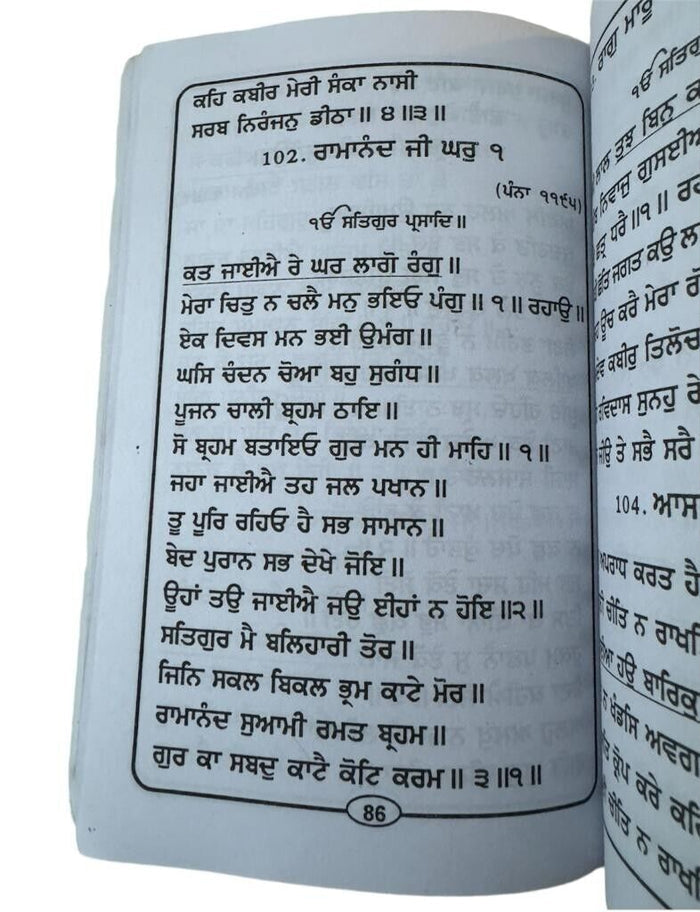 ਕਹਿ ਕਬੀਰ ਮੇਰੀ ਸੰਕਾ ਨਾਸੀ
ਸਰਬ ਨਿਰੰਜਨੁ ਡੀਠਾ॥ ੪॥੩॥
102. ਰਾਮਾਨੰਦ ਜੀ ਘਰੁ ੧
(ਪੰਨਾ ੧੧੯੫)
ੴ ਸਤਿਗੁਰ ਪ੍ਰਸਾਦਿ॥
ਕਤ ਜਾਈਐ ਰੇ ਘਰ ਲਾਗੋ ਰੰਗੁ॥
ਮੇਰਾ ਚਿਤੁ ਨ ਚਲੈ ਮਨੁ ਭਇਓ ਪੰਗੁ॥ ੧॥ ਰਹਾਉ॥
ਏਕ ਦਿਵਸ ਮਨ ਭਈ ਉਮੰਗ॥
ਘਸਿ ਚੰਦਨ ਚੋਆ ਬਹੁ ਸੁਗੰਧ॥
ਪੂਜਨ ਚਾਲੀ ਬ੍ਰਹਮ ਠਾਇ॥
ਸੋ ਬ੍ਰਹਮ ਬਤਾਇਓ ਗੁਰ ਮਨ ਹੀ ਮਾਹਿ॥ ੧॥
ਜਹਾ ਜਾਈਐ ਤਹ ਜਲ ਪਖਾਨ॥
ਤੂ ਪੂਰਿ ਰਹਿਓ ਹੈ ਸਭ ਸਾਮਾਨ॥
ਬੇਦ ਪੁਰਾਨ ਸਭ ਦੇਖੇ ਜੋਇ॥
ਊਹਾਂ ਤਉ ਜਾਈਐ ਜਉ ਈਹਾਂ ਨ ਹੋਇ॥੨॥
ਸਤਿਗੁਰ ਮੈ ਬਲਿਹਾਰੀ ਤੋਰ॥
ਜਿਨਿ ਸਕਲ ਬਿਕਲ ਭ੍ਰਮ ਕਾਟੇ ਮੋਰ॥
ਰਾਮਾਨੰਦ ਸੁਆਮੀ ਰਮਤ ਬ੍ਰਹਮ॥
ਗੁਰ ਕਾ ਸਬਦੁ ਕਾਟੈ ਕੋਟਿ ਕਰਮ॥ ੩॥੧॥
86
ਰਾਗੁ ਮਾਰੂ
ੴ ਸਤਿਗੁਰ
ਲਾਲ ਤੁਝ ਬਿਨੁ
ਨਿਵਾਜੁ ਗੁਸਈਆ
ਧਰੈ॥੧॥ ਰਹਾ
ਜਗਤ ਕਉ ਲਾ
ਊਚ ਕਰੈ ਮੇਰਾ
ਕਬੀਰੁ ਤਿਲੋਚ
ਰਵਿਦਾਸ ਸੁਨਹੁ ਰੇ
ਜੀਉ ਤੇ ਸਭੈ ਸਰੈ
104. ਆਸ
ਅਪਰਾਧ ਕਰਤ ਹੈ
ਚੀਤਿ ਨ ਰਾਖਸਿ
ਹਉ ਬਾਰਿਕੁ
ਨ ਖੰਡਸਿ ਅਵਗ
ਕ੍ਰੋਪ ਕਰੇ ਕਰਿ
ਚੀਤਿ ਨ ਰਾਖ